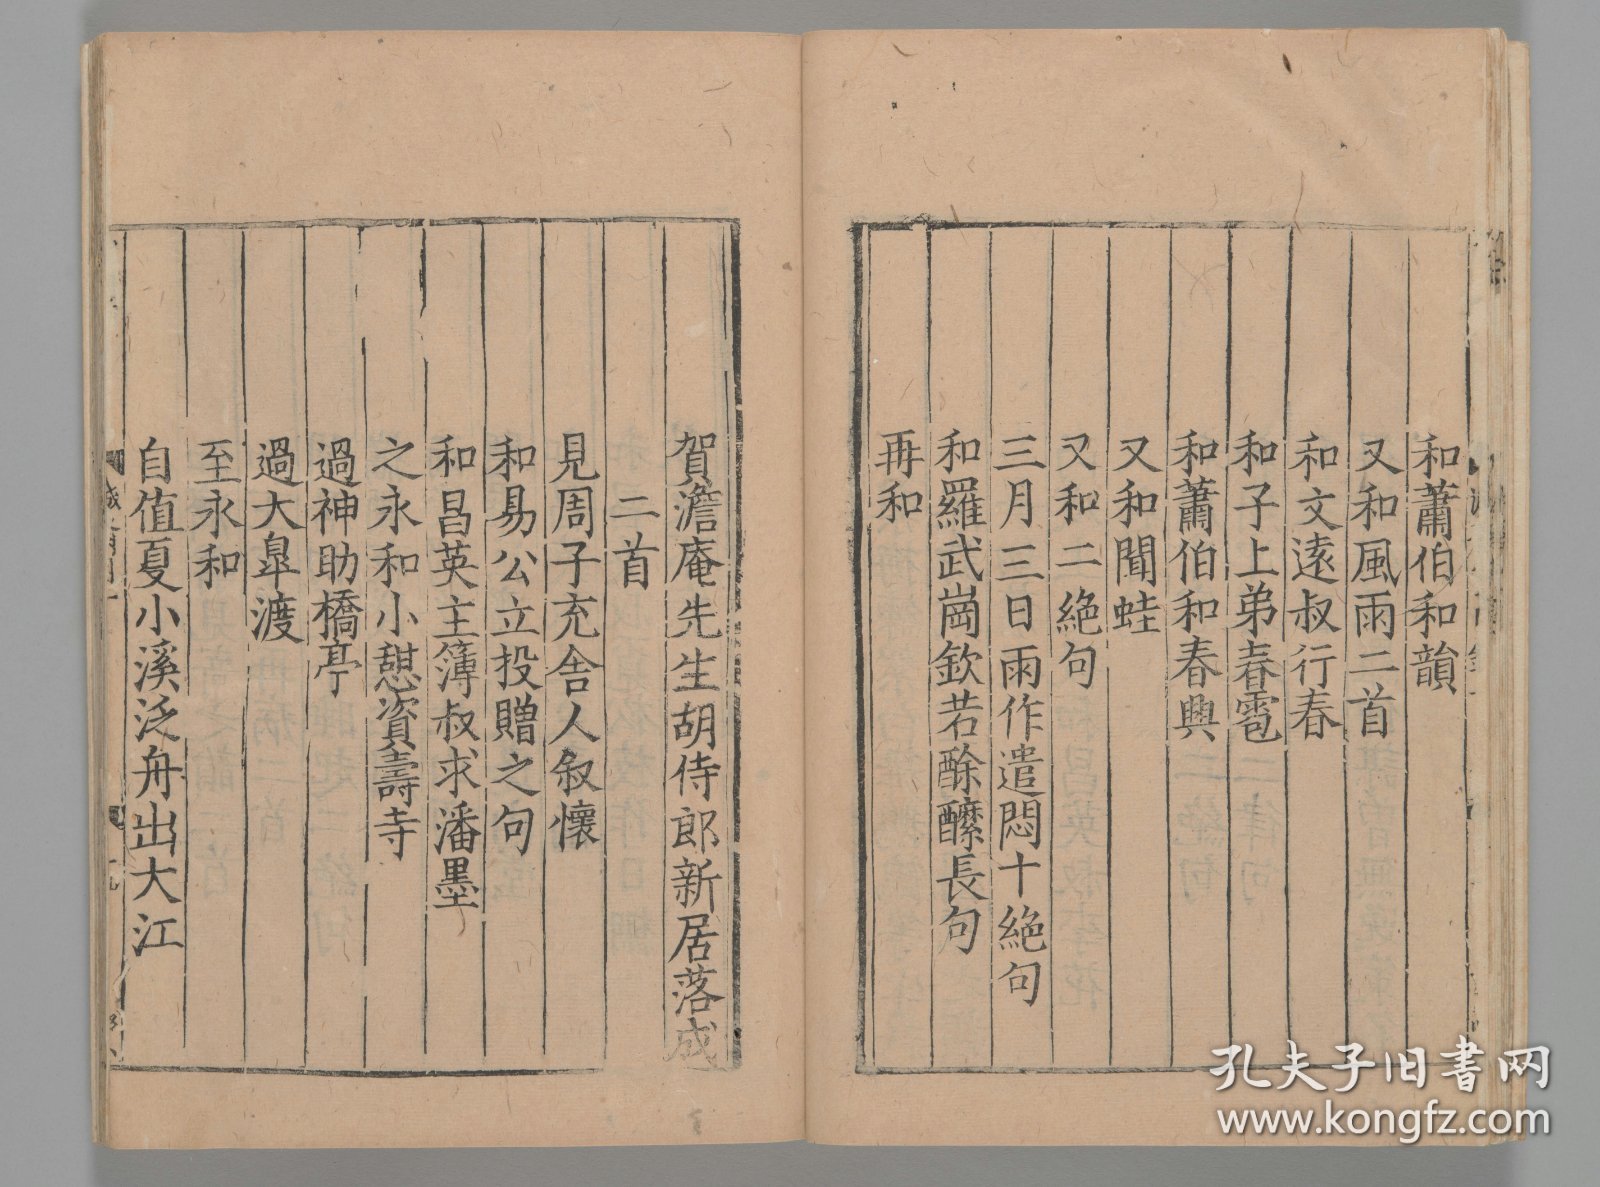 和蕭伯和韻
又和風雨二首
和文遠叔行春
和子上弟春雹
和蕭伯和春興
又和聞蛙
又和二絶句
三月三日雨作遣悶十絶句
和羅武岡欽若酴醾長句
再和
賀澹庵先生胡侍郎新居落成
二首
見周子充舍人叙懷
和昜公立投贈之句
和昌英主簿叔求潘墨
之永和小憇資壽寺
過神助橋亭
過大臯渡
至永和
自值夏小溪泛舟出大江
孔夫子旧书网
www.kongfz.com